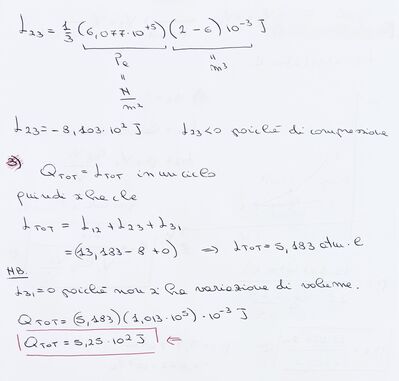 L₂₃ = 1/3 (6,077·10⁺⁵)(2 - 6) 10⁻³ J
Pₑ " m³
"
N/m²
L₂₃ = -8,103·10² J L₂₃<0 poiché di compressione
3) Q_TOT = L_TOT in un ciclo
quindi si ha che
L_TOT = L₁₂ + L₂₃ + L₃₁
= (13,183 - 8 + 0) ⇒ L_TOT = 5,183 atm·l
NB.
L₃₁ = 0 poiché non si ha variazione di volume.
Q_TOT = (5,183)(1,013·10⁵)·10⁻³ J
Q_TOT = 5,25·10² J ⇐